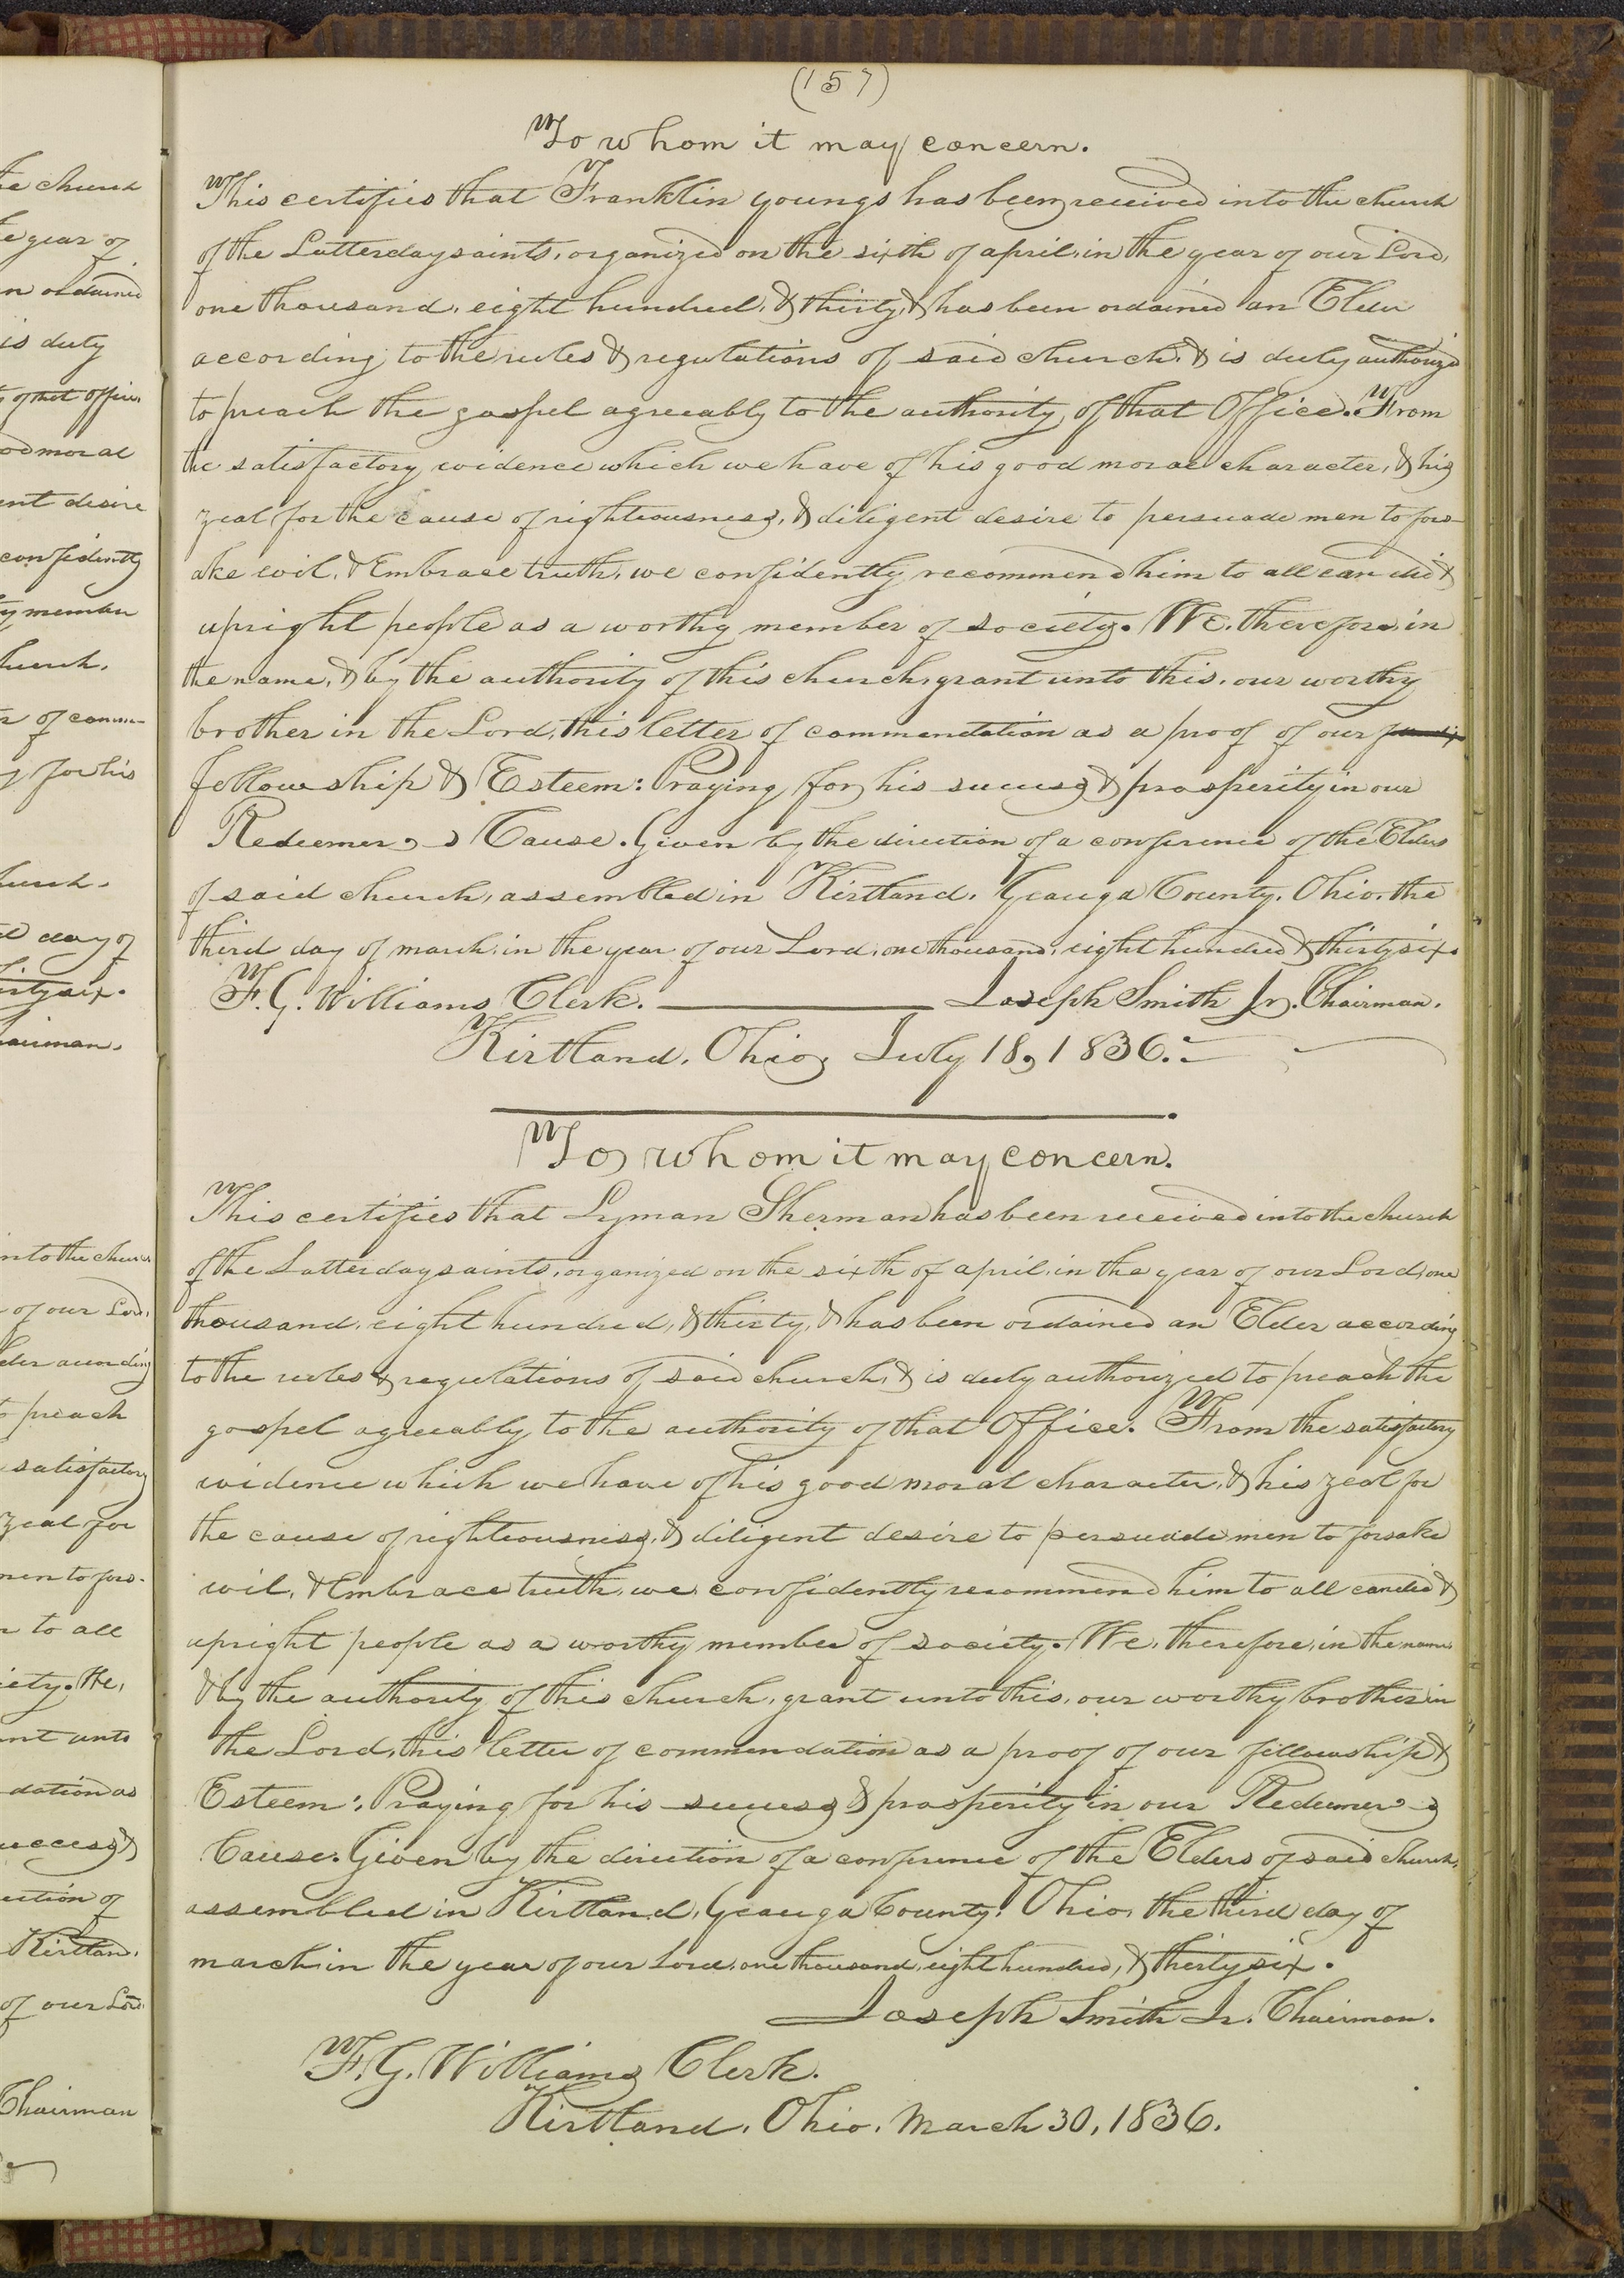 (157)
To whom it may concern.
This certifies that Franklin Youngs has been received into the church
of the Latterday saints, organized on the sixth of april, in the year of our Lord,
one thousand, eight hundred, & thirty, & has been ordained an Elder
according to the rules & regulations of said church, & is duly authorized
to preach the gospel agreeably to the authority of that Office. From
the satisfactory evidence which we have of his good moral character, & his
zeal for the cause of righteousness, & diligent desire to persuade men to fors-
ake evil, & Embrace truth, we confidently recommend him to all candid &
upright people as a worthy member of society. We, therefore, in
the name, & by the authority of this church, grant unto this, our worthy
brother in the Lord, this letter of commendation as a proof of our
fellowship & Esteem: Praying for his success & prosperity in our
Redeemer's Cause. Given by the direction of a conference of the Elders
of said church, assembled in Kirtland, Geauga County, Ohio, the
third day of march, in the year of our Lord, one thousand, eight hundred & thirty six.
F. G. Williams Clerk. Joseph Smith Jr. Chairman.
Kirtland, Ohio, July 18, 1836.
To whom it may concern.
This certifies that Lyman Sherman has been received into the church
of the Latterday saints, organized on the sixth of april, in the year of our Lord, one
thousand, eight hundred, & thirty, & has been ordained an Elder according
to the rules & regulations of said church, & is duly authorized to preach the
gospel agreeably to the authority of that Office. From the satisfactory
evidence which we have of his good moral character, & his zeal for
the cause of righteousness, & diligent desire to persuade men to forsake
evil, & Embrace truth, we confidently recommend him to all candid &
upright people as a worthy member of society. We, therefore, in the name,
& by the authority of this church, grant unto this, our worthy brother in
the Lord, this letter of commendation as a proof of our fellowship &
Esteem: Praying for his success & prosperity in our Redeemer's
Cause. Given by the direction of a conference of the Elders of said church,
assembled in Kirtland, Geauga County, Ohio, the third day of
march, in the year of our Lord, one thousand, eight hundred, & thirty six.
Joseph Smith Jr. Chairman.
F. G. Williams Clerk.
Kirtland, Ohio, March 30, 1836.